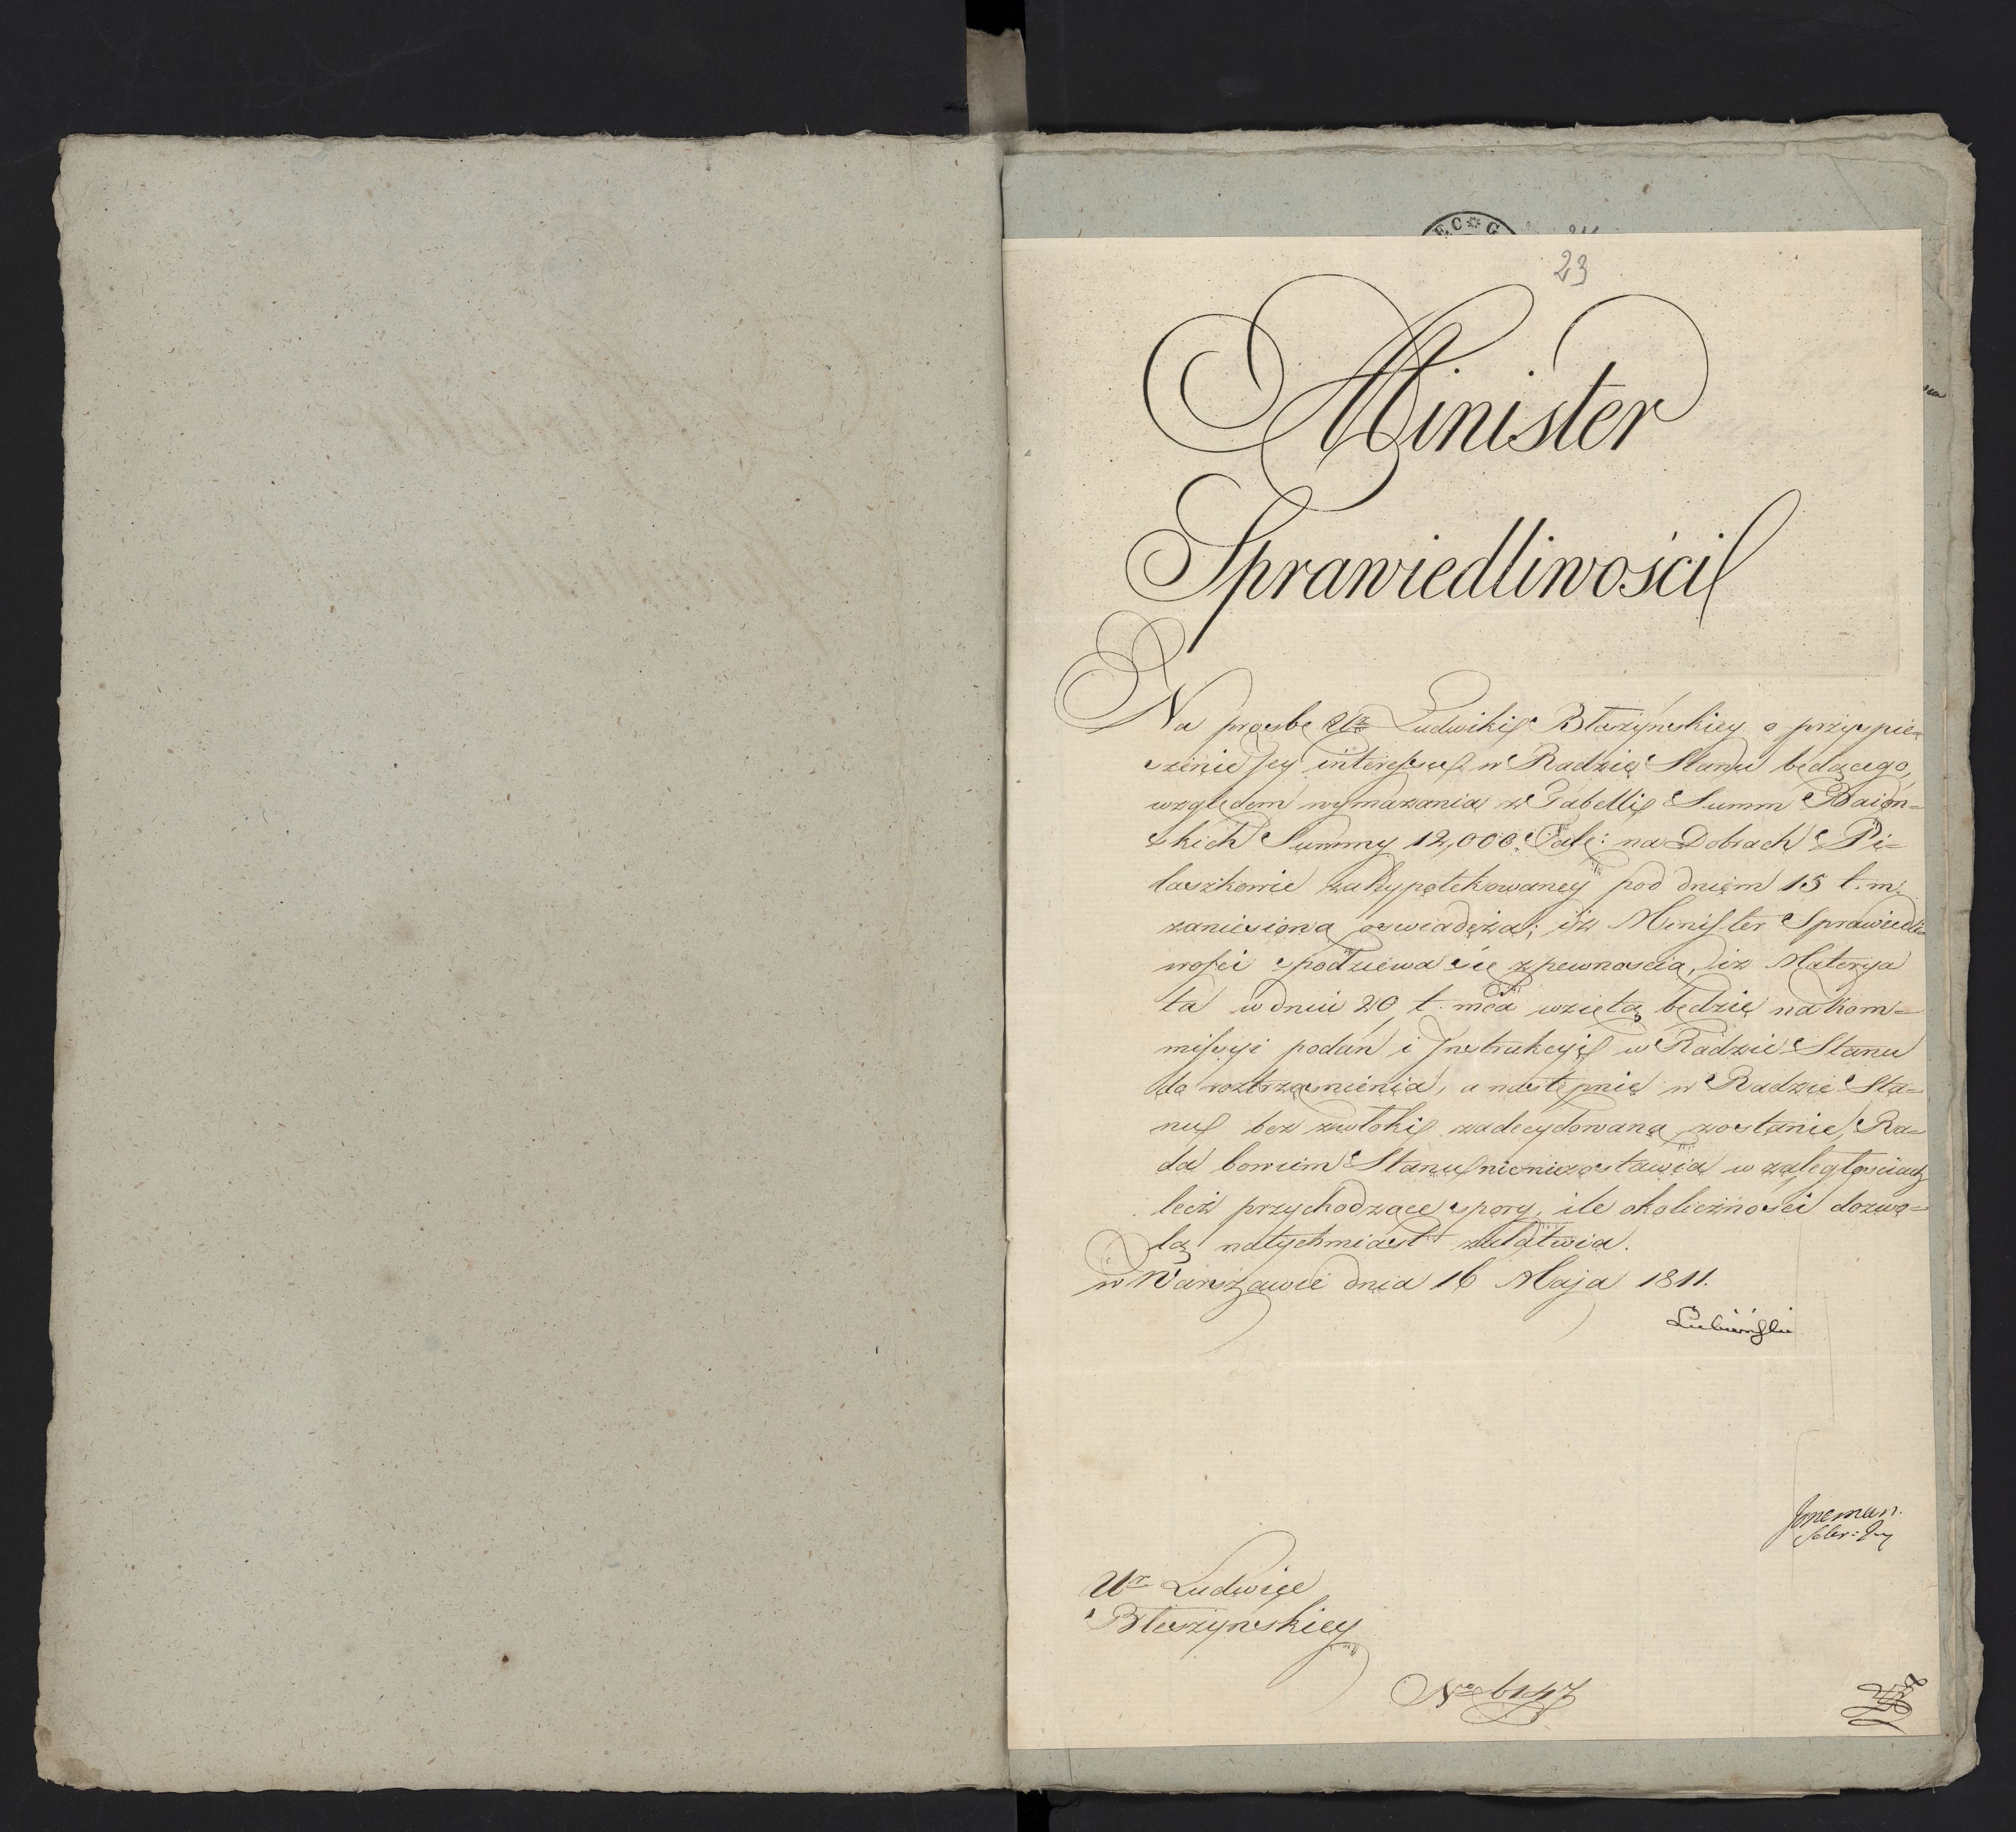 23
Minister
Sprawiedliwości
Na prosbę Ur Ludwiki Błeszynskiey o przyspie=
szenie Jey interessu w Radzie Stanu będącego,
względem wymazania z Tabelli Summ Baion=
skich Summy 12,000. Tal: na Dobrach Pi=
laszkowie zahypotekowaney pod dniem 15 t. m.
zaniesioną oswiadcza; iż Minister Sprawiedli=
wości spodziewa się z pewnoscią, iż Materya
ta w dniu 20 t. mca wziętą będzie na Kom=
missyi podan i Instrukcyi w Radzie Stanu
do roztrząsnienia, a następnie w Radzie Sta=
nu bez zwłoki zadecydowaną zostanie, Ra=
da bowiem Stanu nic niezostawia w zaległosciach
lecz przychodzące spory, ile okoliczności dozwo=
lą natychmiast załatwia.
w Warszawie dnia 16 Maja 1811.
Lubieński
Ur Ludwice
Błeszynskiey
No 6147